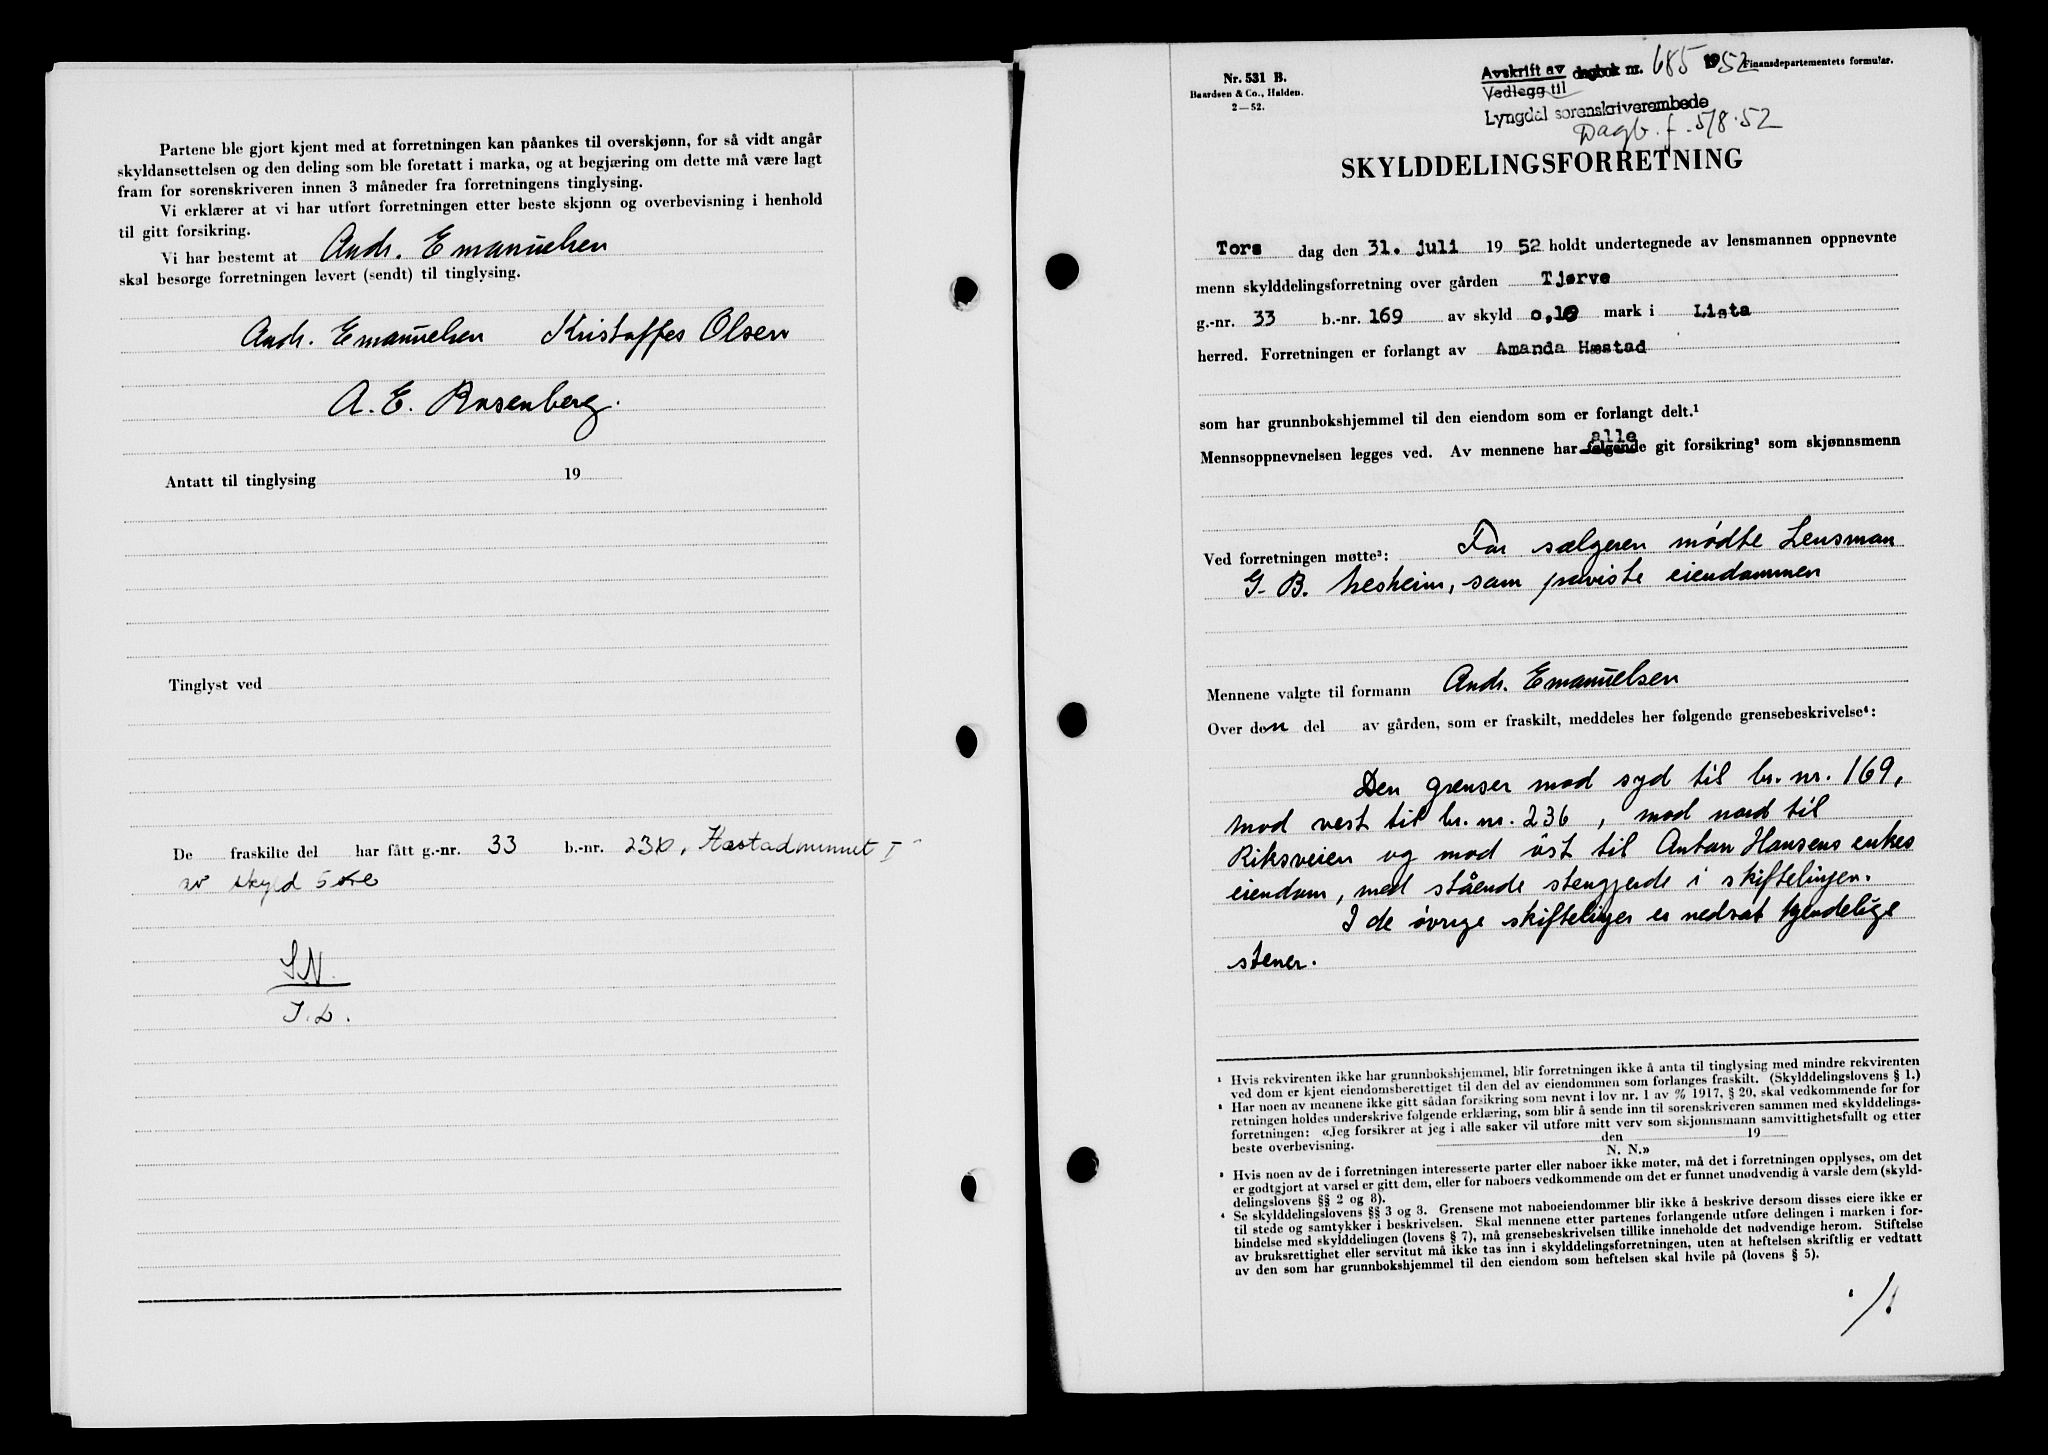 Partene ble gjort kjent med at forretningen kan påankes til overskjønn, for så vidt angår
skyldansettelsen og den deling som ble foretatt i marka, og at begjæring om dette må være lagt
fram for sorenskriveren innen 3 måneder fra forretningens tinglysing.
Vi erklærer at vi har utført forretningen etter beste skjønn og overbevisning i henhold
til gitt forsikring.
Vi har bestemt at Andr. Emanuelsen
skal besørge forretningen levert (sendt) til tinglysing.
Andr. Emanuelsen Kristoffer Olsen
A. E. Rosenberg.
Antatt til tinglysing 19
Tinglyst ved
De fraskilte del har fått g.-nr. 33 b.-nr. Hæstadminnet I
av skyld 5 øre
S.N.
Nr. 531 B.
Baardsen & Co., Halden.
2—52.
Avskrift av dagbok nr. 685 1952 Finansdepartementets formular.
Vedlegg til
Lyngdal sorenskriverembede
Dagb. f. 5/8.52
SKYLDDELINGSFORRETNING
Tors dag den 31. juli 1952 holdt undertegnede av lensmannen oppnevnte
menn skylddelingsforretning over gården Tjørve
g.-nr. 33 b.-nr. 169 av skyld mark i Lista
herred. Forretningen er forlangt av Amanda Hæstad
som har grunnbokshjemmel til den eiendom som er forlangt delt.¹
alle
Mennsoppnevnelsen legges ved. Av mennene har følgende git forsikring² som skjønnsmenn
Ved forretningen møtte³: For sælgeren mødte Lensman
G. B. Nesheim, som paaviste eiendommen
Mennene valgte til formann Andr. Emanuelsen
Over den del av gården, som er fraskilt, meddeles her følgende grensebeskrivelse⁴:
Den grenser mod syd til br. nr. 169,
mod vest til br. nr. 236, mod nord til
Riksveien og mod øst til Anton Hansens enkes
eiendom, med stående stengjerde i skiftelinjen.
I de øvrige skiftelinjer er nedsat kjendelige
stener.
¹ Hvis rekvirenten ikke har grunnbokshjemmel, blir forretningen ikke å anta til tinglysing med mindre rekvirenten
ved dom er kjent eiendomsberettiget til den del av eiendommen som forlanges fraskilt. (Skylddelingslovens § 1.)
² Har noen av mennene ikke gitt sådan forsikring som nevnt i lov nr. 1 av 1917, § 20, skal vedkommende før for
retningen holdes underskrive følgende erklæring, som blir å sende inn til sorenskriveren sammen med skylddelings-
forretningen: «Jeg forsikrer at jeg i alle saker vil utføre mitt verv som skjønnsmann samvittighetsfullt og etter
beste overbevisning. den 19
N. N.»
³ Hvis noen av de i forretningen interesserte parter eller naboer ikke møter, må det i forretningen opplyses, om det
er godtgjort at varsel er gitt dem, eller for naboers vedkommende om det er funnet unødvendig å varsle dem (skyld-
delingslovens §§ 2 og 8).
⁴ Se skylddelingslovens §§ 3 og 3. Grensene mot naboeiendommer blir ikke å beskrive dersom disses eiere ikke er
til stede og samtykker i beskrivelsen. Skal mennene etter partenes forlangende utføre delingen i marken i for-
bindelse med skylddelingen (lovens § 7), må grensebeskrivelsen tillike inneholde det nødvendige herom. Stiftelse
av bruksrettighet eller servitut må ikke tas inn i skylddelingsforretningen, uten at heftelsen skriftlig er vedtatt
av den som har grunnbokshjemmel til den eiendom som heftelsen skal hvile på (lovens § 5).